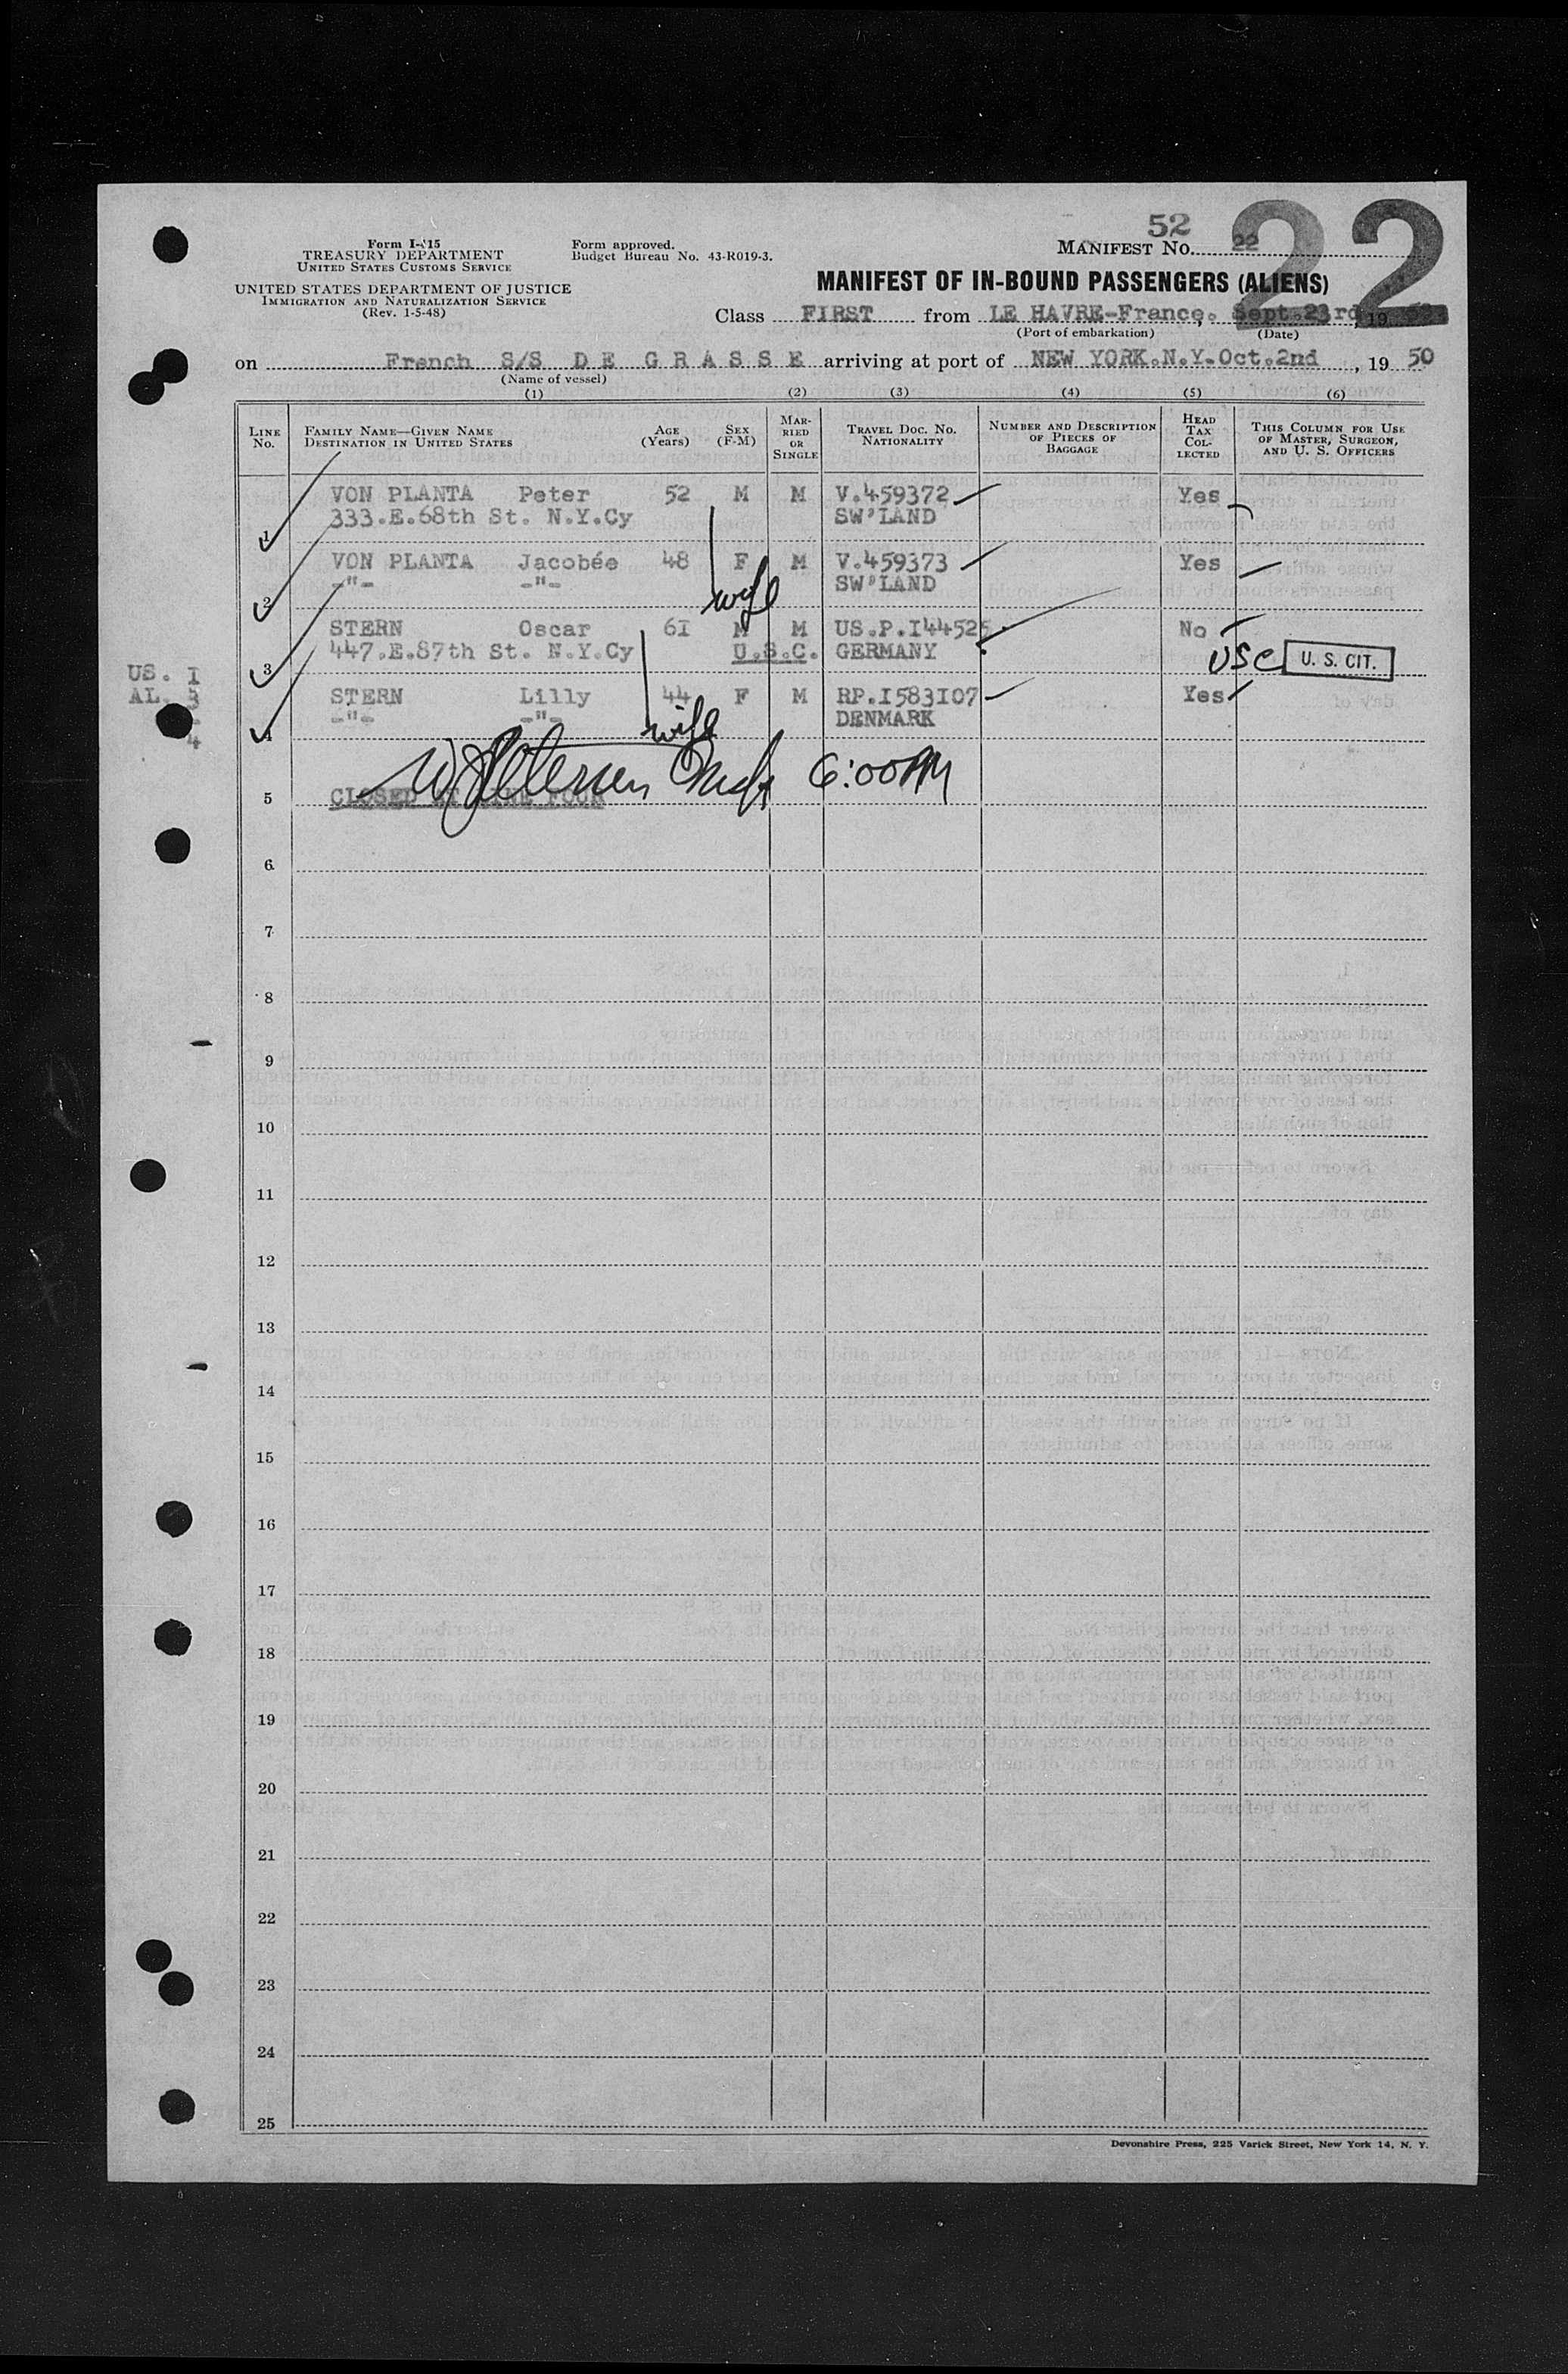 52
22
Form I-415
TREASURY DEPARTMENT
UNITED STATES CUSTOMS SERVICE
UNITED STATES DEPARTMENT OF JUSTICE
IMMIGRATION AND NATURALIZATION SERVICE
(Rev. 1-5-48)
Form approved.
Budget Bureau No. 43-R019-3.
MANIFEST NO. 22
MANIFEST OF IN-BOUND PASSENGERS (ALIENS)
Class FIRST from LE HAVRE-France. Sept.23rd, 19
(Port of embarkation) (Date)
on French S/S DE GRASSE arriving at port of NEW YORK.N.Y-Oct.2nd, 19 50
(Name of vessel)
(1) (2) (3) (4) (5) (6)
LINE No. FAMILY NAME—GIVEN NAME DESTINATION IN UNITED STATES AGE (Years) SEX (F-M) MARRIED OR SINGLE TRAVEL DOC. NO. NATIONALITY NUMBER AND DESCRIPTION OF PIECES OF BAGGAGE HEAD TAX COLLECTED THIS COLUMN FOR USE OF MASTER, SURGEON, AND U. S. OFFICERS
VON PLANTA Peter 52 M M V.459372 Yes
1 333.E.68th St. N.Y.Cy SW'LAND
VON PLANTA Jacobée 48 F M V.459373 Yes
2 -"- -"- wife SW'LAND
STERN Oscar 61 M M US.P.I44525 No
3 447.E.87th St. N.Y.Cy U.S.C. GERMANY USC U. S. CIT.
US. I
AL. 3
4
STERN Lilly 44 F M RP.I583I07 Yes
4 -"- -"- wife DENMARK
W Petersen Insp 6:00 PM
5 CLOSED AT LINE FOUR
6
7
8
9
10
11
12
13
14
15
16
17
18
19
20
21
22
23
24
25
Devonshire Press, 225 Varick Street, New York 14, N. Y.